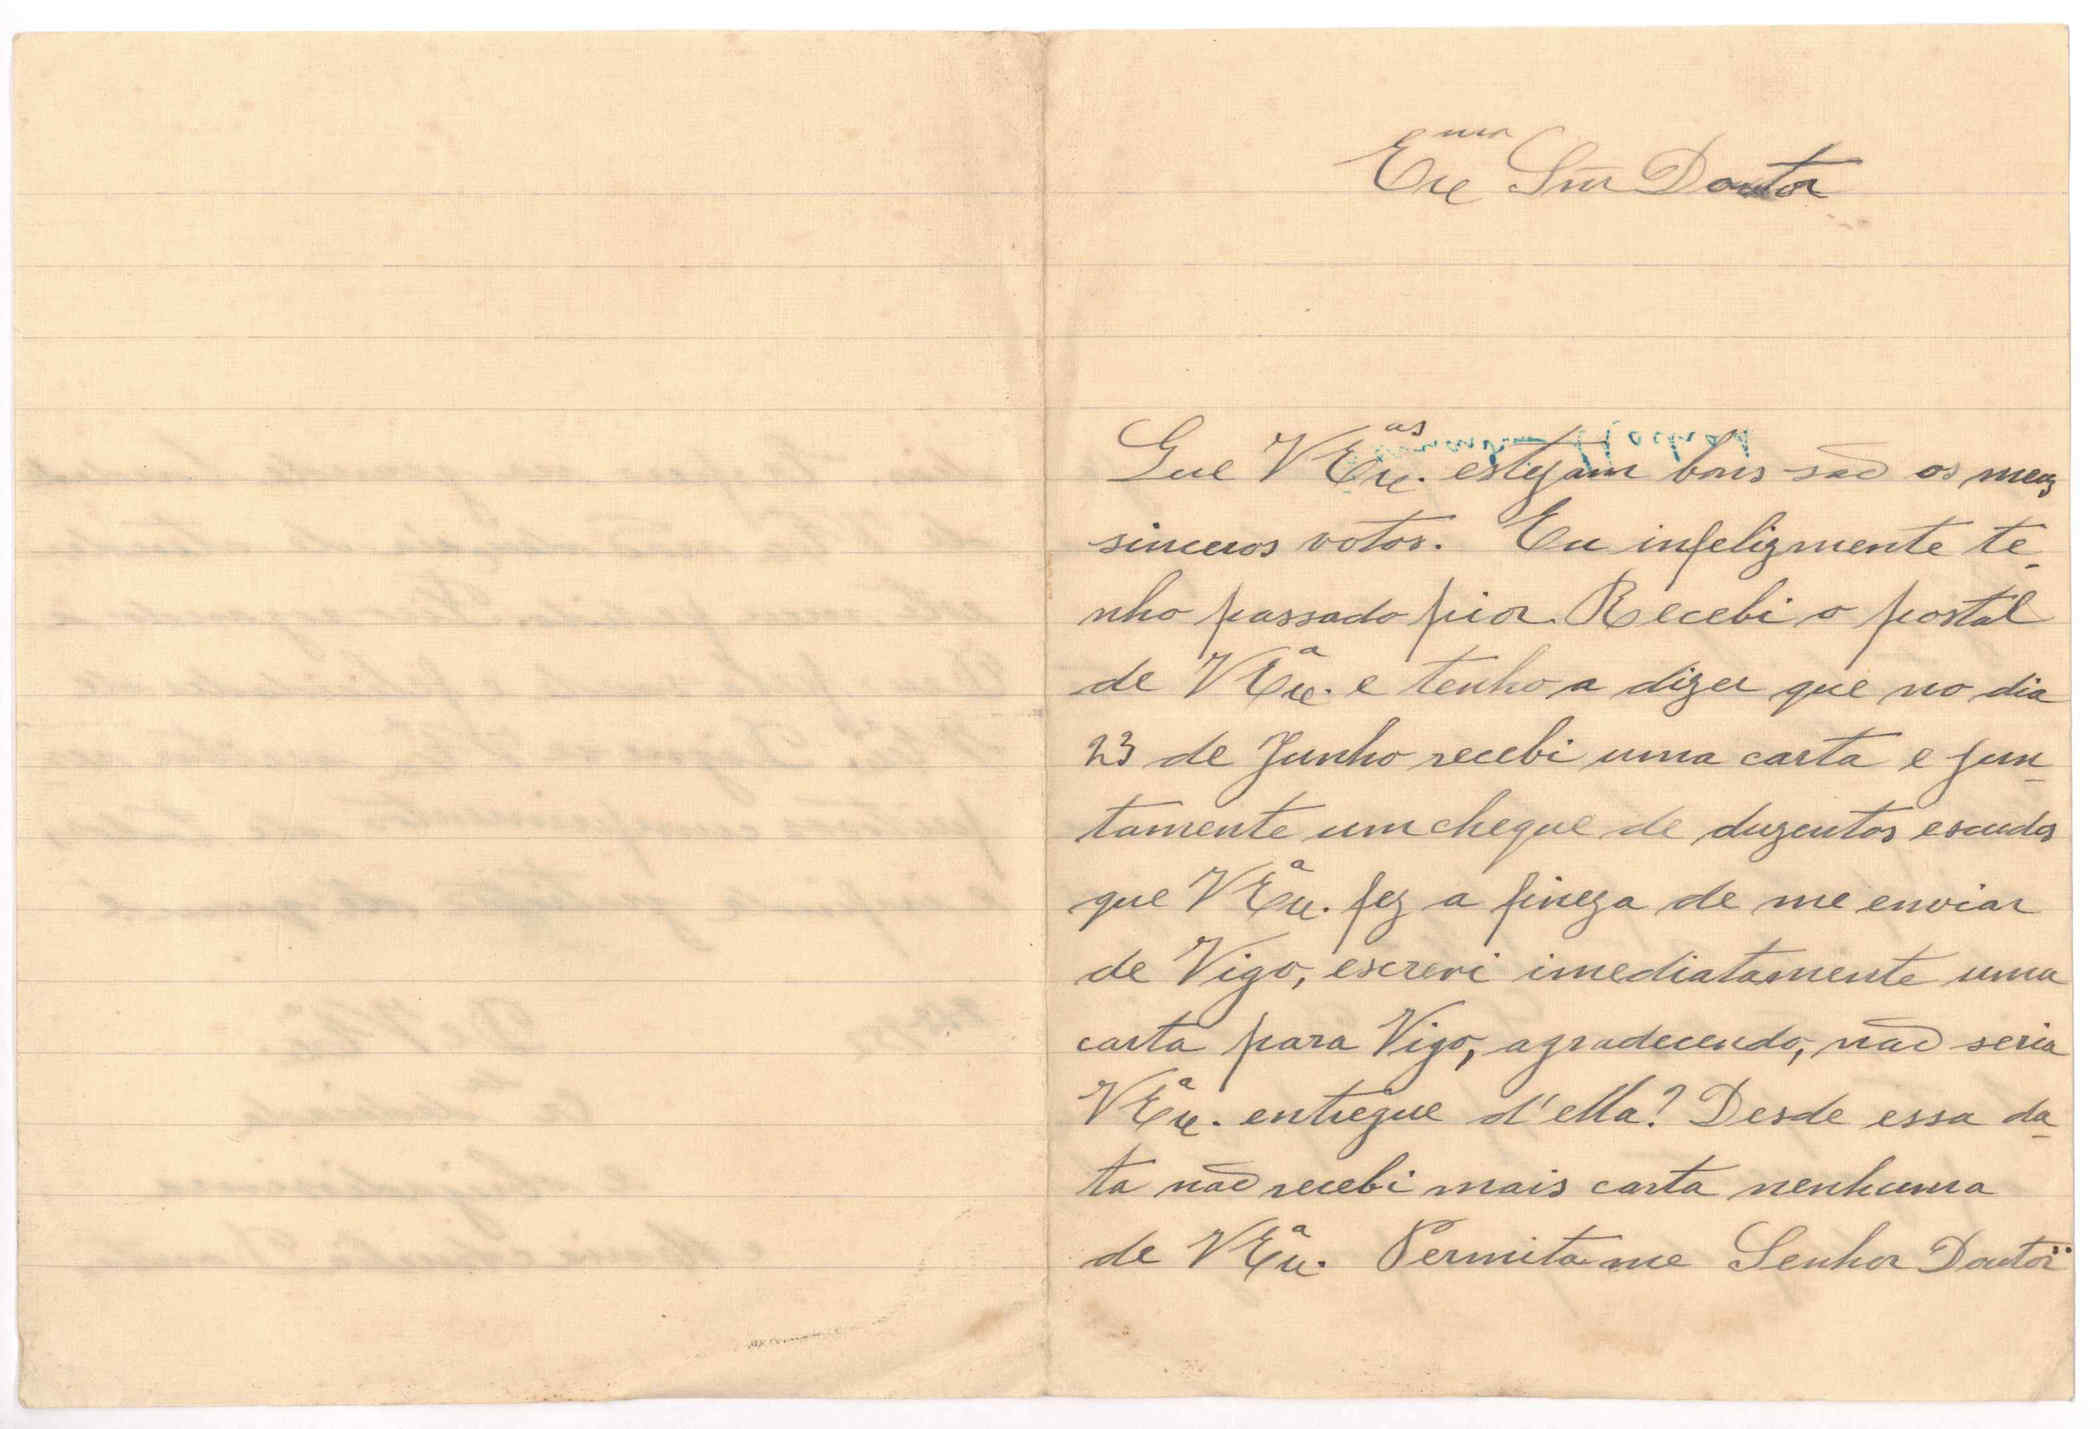 Exmo Snr Doutor
Que V Exas. estejam bons são os meus
sinceros votos. Eu infelizmente te-
nho passado pior. Recebi o postal
de V Exa. e tenho a dizer que no dia
23 de Junho recebi uma carta e jun-
tamente um cheque de duzentos escudos
que V Exa. fez a fineza de me enviar
de Vigo, escrevi imediatamente uma
carta para Vigo, agradecendo, não seria
V Exa. entregue d'ella? Desde essa da-
ta não recebi mais carta nenhuma
de V Exa. Permita-me Senhor Doutor